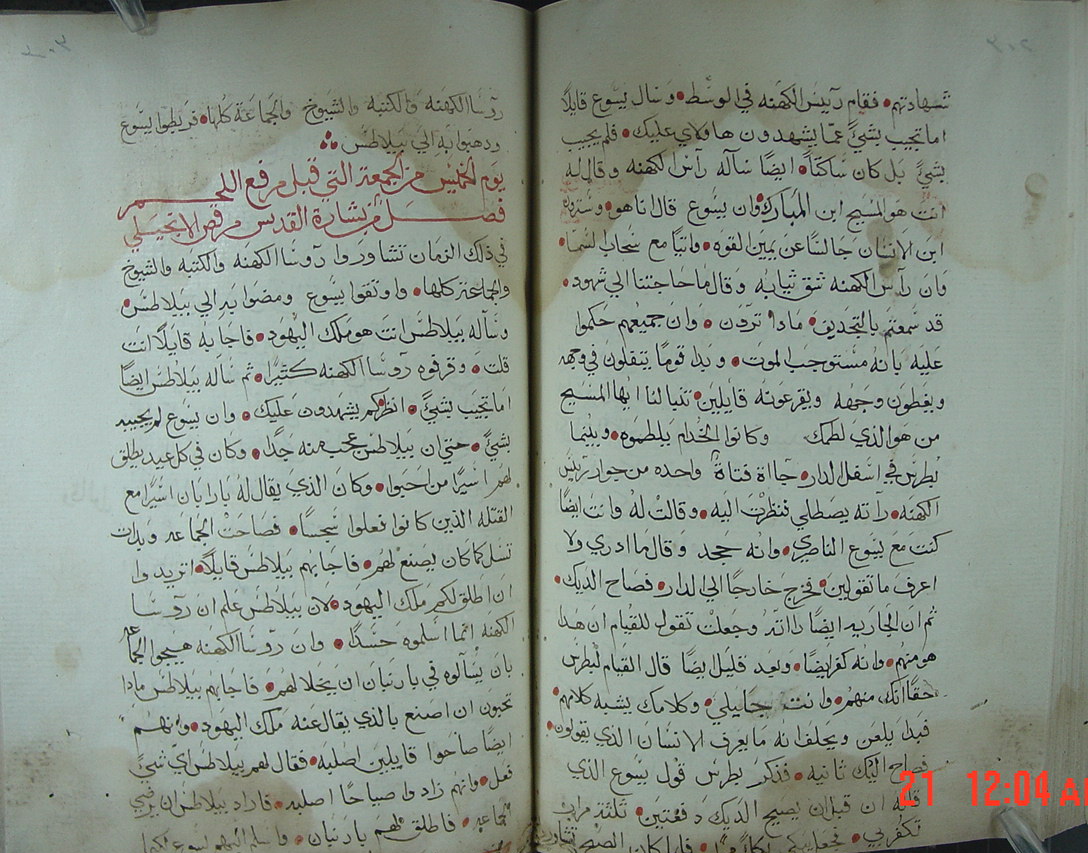 شهادتهم • فقام رييس الكهنه في الوسط • وسال يسوع قايلا
اما تجيب بشيٍ عما يشهدون هاولاي عليك • فلم يجيب
بشيٍ بل كان ساكتا • ايضا ساله راس الكهنه وقال له
انت هو المسيح ابن المبارك • وان يسوع قال انا هو • وسترون
ابن الانسان جالسا عن يمين القوه • واتيا مع سحاب السما •
وان راس الكهنه شق ثيابه وقال ما حاجتنا الي شهود •
قد سمعتم بالتجديف • مادا تردن • وان جميعهم حكموا
عليه بانه مستوجب الموت • وبدا قوما يتفلون في وجهه
ويغطون وجهه ويقرعونه قايلين • تنبا لنا ايها المسيح
من هو الذي لطمك وكانوا الخدام يلطموه • وبينما
بطرس في اسفل الدار • جااة فتاة واحده من جوار رييس
الكهنه • راته يصطلي فنظرت اليه • وقالت له وانت ايضا
كنت مع يسوع الناصري • وانه جحد وقال ما ادري ولا
اعرف ما تقولين • فخرج خارجا الي الدار • فصاح الديك •
ثم ان الجاريه ايضا راته وجعلت تقول للقيام ان هدا
هو منهم • وانه كفر ايضا • وبعد قليل ايضا قال القيام لبطرس
حقا انك منهم • وانت جليلي • وكلامك يشبه كلامهم •
فبدا يلعن ويحلف انه ما يعرف الانسان الذي يقولون •
فصاح الديك ثانيه • فذكر بطرس قول يسوع الذي
قاله ان قبل ان يصيح الديك دفعتين • ثلثة مرات
تكفر بي • فجعل يبكي • فلما كان الصبح تشاوروا
روسا الكهنه والكتبه والشيوخ والجماعة كلها • فربطوا يسوع
ودهبوا به الي بيلاطس
يوم الخميس من الجمعة التي قبل مرفع اللحم
فصل من بشارة القديس مرقس الانجيلي
في ذلك الزمان تشاوروا روسا الكهنه والكتبه والشيوخ
والجماعة كلها • واوثقوا يسوع ومضوا به الي بيلاطس •
وساله بيلاطس انت هو ملك اليهود • فاجابه قايلا انت
قلت • وقرفوه روسا الكهنه كثيرا • ثم ساله بيلاطس ايضا
اما تجيب بشيٍ • انظر كم يشهدون عليك • وان يسوع لم يجيبه
بشيٍ • حتي ان بيلاطس عجب منه جدا • وكان في كل عيد يطلق
لهم اسيرا من احبوا • وكان الذي يقال له بارابان اسيرا مع
القتله الذين كانوا فعلوا سجسا • فصاحت الجماعه وبدات
تسل كما كان يصنع لهم • فاجابهم بيلاطس قايلا • اتريدوا
ان اطلق لكم ملك اليهود • لان بيلاطس علم ان روسا
الكهنه انما اسلموه حسدا • وان روسا الكهنه هيجوا الجماعه
بان يسالوه في باربان ان يخلا لهم • فاجابهم بيلاطس مادا
تحبون ان اصنع بالذي يقال عنه ملك اليهود • وانهم
ايضا صاحوا قايلين اصلبه • فقال لهم بيلاطس اي شيٍ
فعل • وانهم زادوا صياحا اصلبه • فاراد بيلاطس ان يرضي
الجماعه • فاطلق لهم باربان • واسلم اليهم يسوع
21 12:04 AM